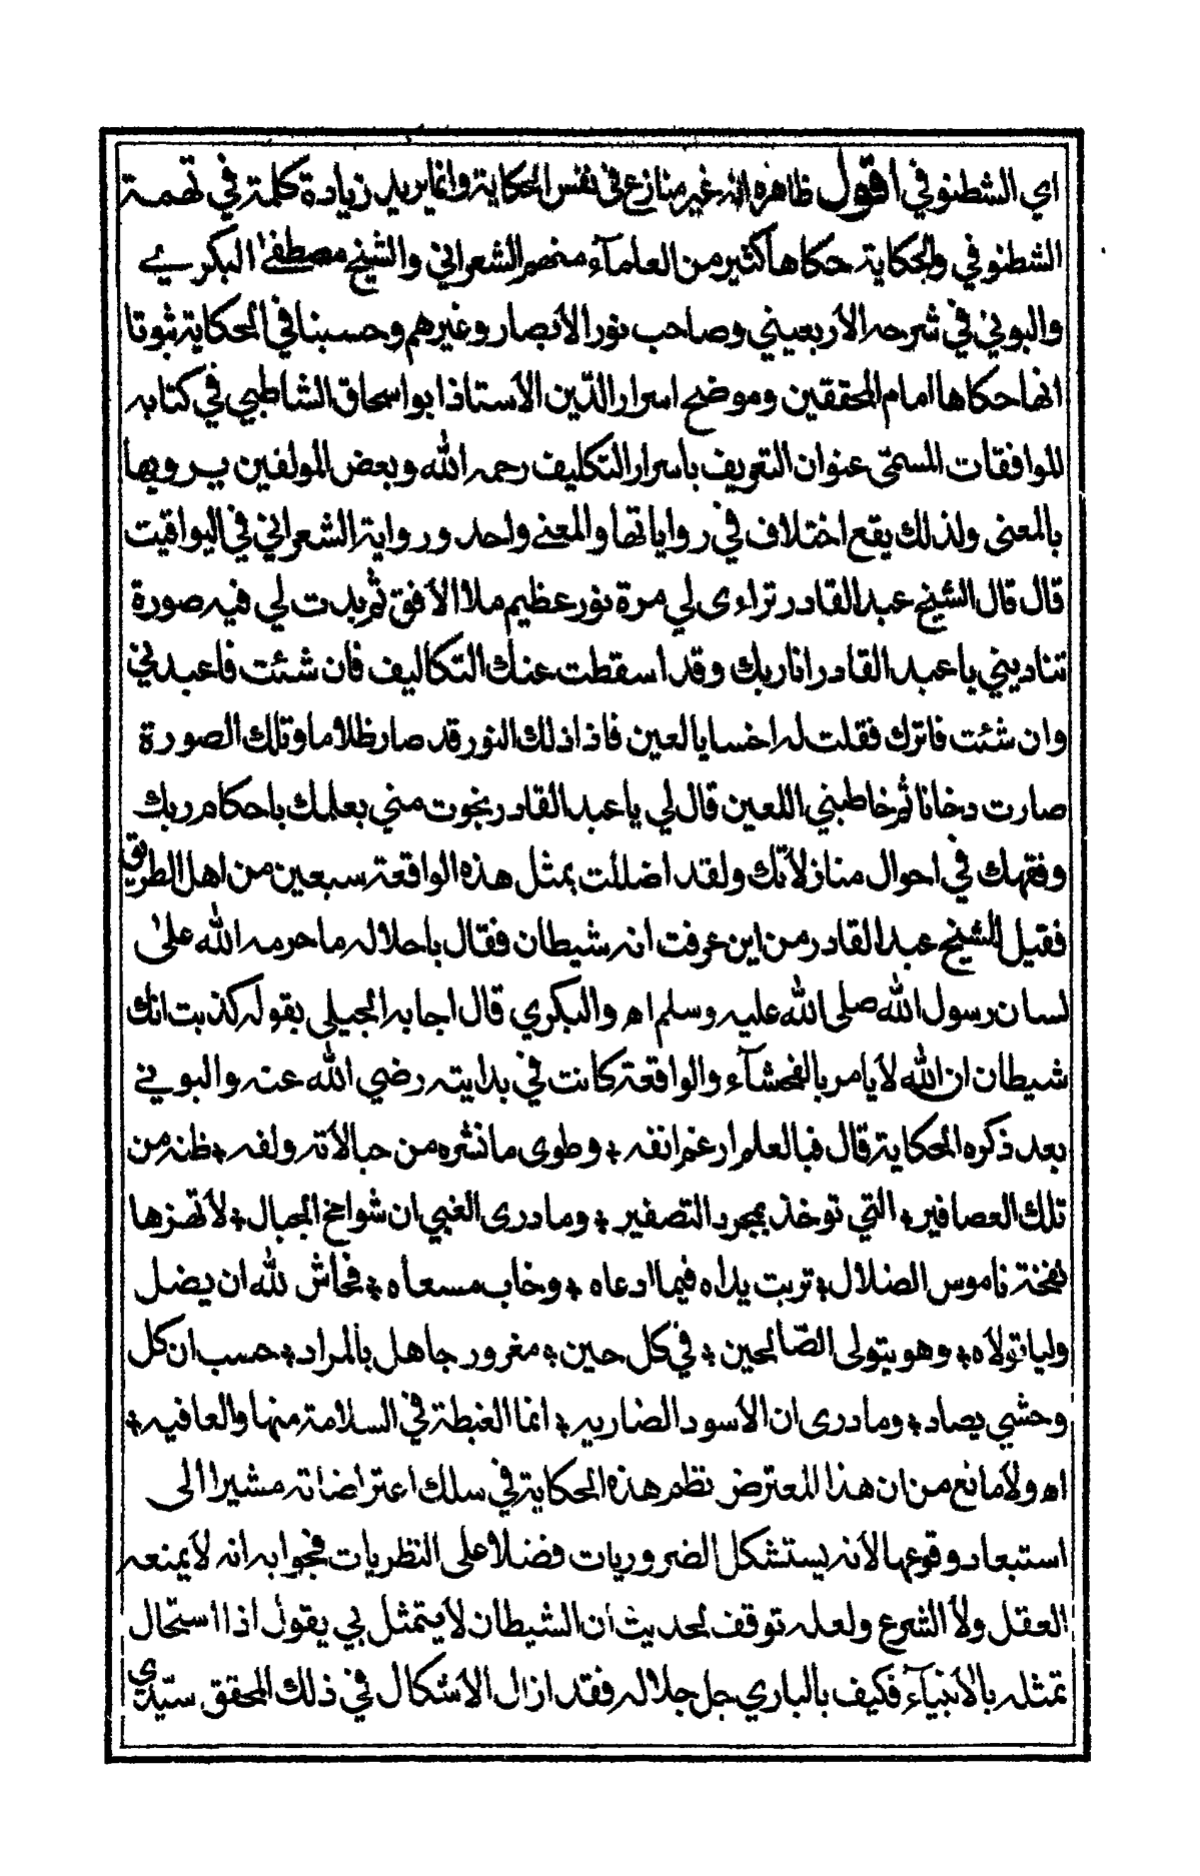 اي الشطنوفي اقول ظاهره انه غير منازع في نفس الحكاية وانما يريد زيادة كلمة في تهمة
الشطنوفي والحكاية حكاها كثير من العلمآء منهم الشعراني والشيخ مصطفى البكري
والبوني في شرحه الاربعيني وصاحب نور الأبصار وغيرهم وحسبنا في الحكاية ثبوتا
انها حكاها امام المحققين وموضح اسرار الدّين الأستاذ ابو اسحاق الشاطبي في كتابه
الموافقات المسمّى عنوان التعريف باسرار التكليف رحمه الله وبعض المولفين يرويها
بالمعنى ولذلك يقع اختلاف في رواياتها والمعنى واحد ورواية الشعراني في اليواقيت
قال قال الشيخ عبد القادر تراءى لي مرة نور عظيم ملا الأفق ثم بدت لي فيه صورة
تناديني يا عبد القادر انا ربك وقد اسقطت عنك التكاليف فان شئت فاعبدني
وان شئت فاترك فقلت له اخسا يا لعين فاذا ذلك النور قد صار ظلاما وتلك الصورة
صارت دخانا ثم خاطبني اللعين قال لي يا عبد القادر نجوت مني بعلمك باحكام ربك
وفقهك في احوال منازلأتك ولقد اضللت بمثل هذه الواقعة سبعين من اهل الطريق
فقيل الشيخ عبد القادر من اين عرفت انه شيطان فقال باحلاله ما حرمه الله على
لسان رسول الله صلى الله عليه وسلم اه والبكري قال اجابه الجيلي بقوله كذبت انك
شيطان ان الله لأيامر بالفحشآء والواقعة كانت في بدايته رضي الله عنه والبوني
بعد ذكره الحكاية قال فبالعلم ارغم انفه * وطوى ما نشره من حبالأته ولفه * ظنه من
تلك العصافير * التي توخذ بمجرد التصفير * وما درى الغبي ان شوامخ الجبال * لأتهزها
نفخة ناموس الضلال * تربت يداه فيما ادعاه * وخاب مسعاه * فحاش لله ان يضل
وليا تولأه * وهو يتولى الصّالحين * في كل حين * مغرور جاهل بالمراد * حسب ان كل
وحشي يصاد * وما درى ان الأسود الضاريه * انما الغبطة في السلامة منها والعافيه *
اه ولأمانع من ان هذا المعترض نظم هذه الحكاية في سلك اعتراضاته مشيرا الى
استبعاد وقوعها لأنه يستشكل الضروريات فضلا على النظريات فجوابه انه لأيمنعه
العقل ولأ الشرع ولعله توقف لحديث أن الشيطان لأيتمثل بي يقول اذا استحال
تمثله بالأنبيآء فكيف بالباري جل جلاله فقد ازال الأشكال في ذلك المحقق سيّدي